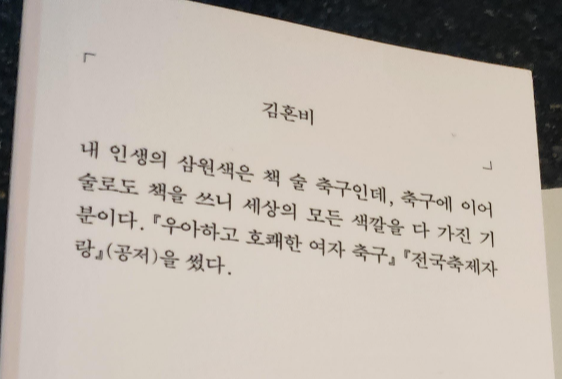 김혼비
내 인생의 삼원색은 책 술 축구인데, 축구에 이어
술로도 책을 쓰니 세상의 모든 색깔을 다 가진 기
분이다. 『우아하고 호쾌한 여자 축구』 『전국축제자
랑』(공저)을 썼다.